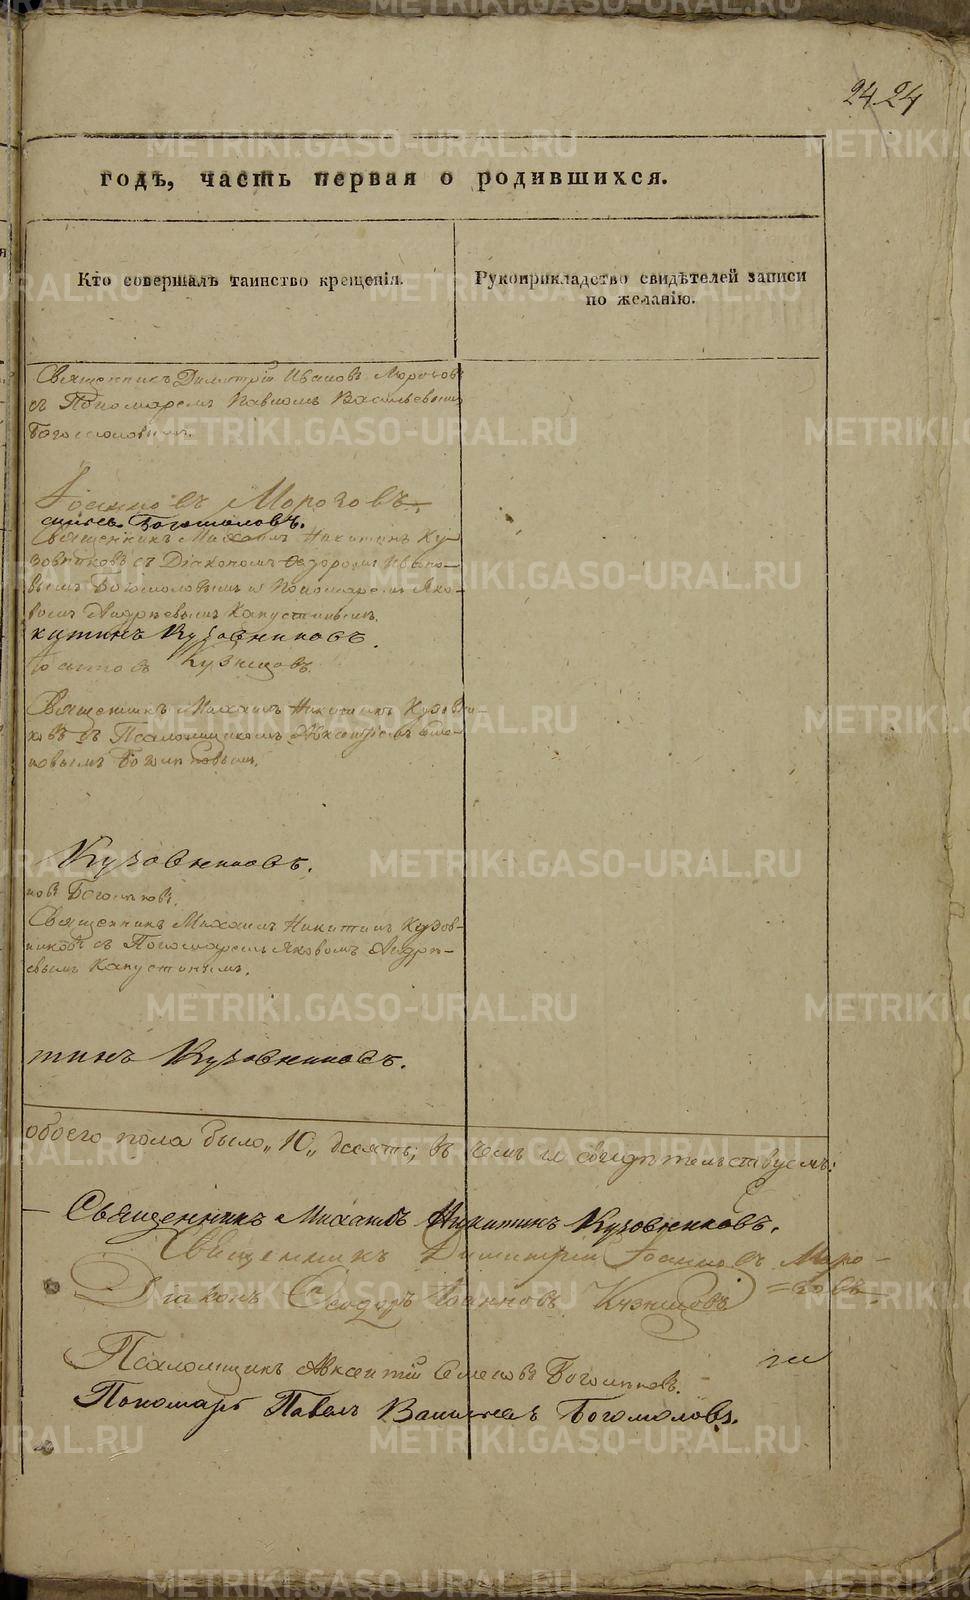 24 24
годъ, часть первая о родившихся.
Кто совершалъ таинство крещенія.
Рукоприкладство свидѣтелей записи
по желанію.
Священникъ Димитрій Ивановъ Морозовъ
съ Пономаремъ Павломъ Васильевымъ
Богомоловымъ.
Іоанновъ Морозовъ.
Богомоловъ.
Священникъ Михаилъ Никитинъ Ку-
зовниковъ съ Діакономъ Ѳедоромъ Ивано-
вымъ Богомоловымъ и Пономаремъ Яко-
вомъ Андреевымъ Капустинымъ.
китинъ Кузовниковъ.
Іоанновъ Кузнецовъ.
Священникъ Михаилъ Никитинъ Кузовни-
ковъ съ Псаломщикомъ Авксентіемъ Семе-
новымъ
Кузовниковъ.
новъ
Священникъ Михаилъ Никитинъ Кузов-
никовъ съ Пономаремъ Яковомъ Андре-
евымъ Капустинымъ.
тинъ Кузовниковъ.
обоего пола было „10„ десять; въ чемъ и свидѣтельствуемъ:
Священникъ Михаилъ Никитинъ Кузовниковъ.
Священникъ Димитрій Іоанновъ Моро-
=зовъ.
Діаконъ Ѳеодоръ Іоанновъ Кузнецовъ
Псаломщикъ Авксентій Семеновъ
Пономарь Павелъ Васильевъ Богомоловъ.
METRIKI.GASO-URAL.RU